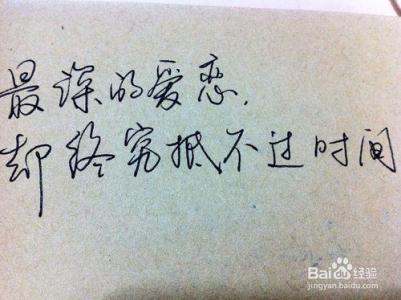 最深的爱恋,
却终究抵不过时间
Baidu 经验
jingyan.baidu.com